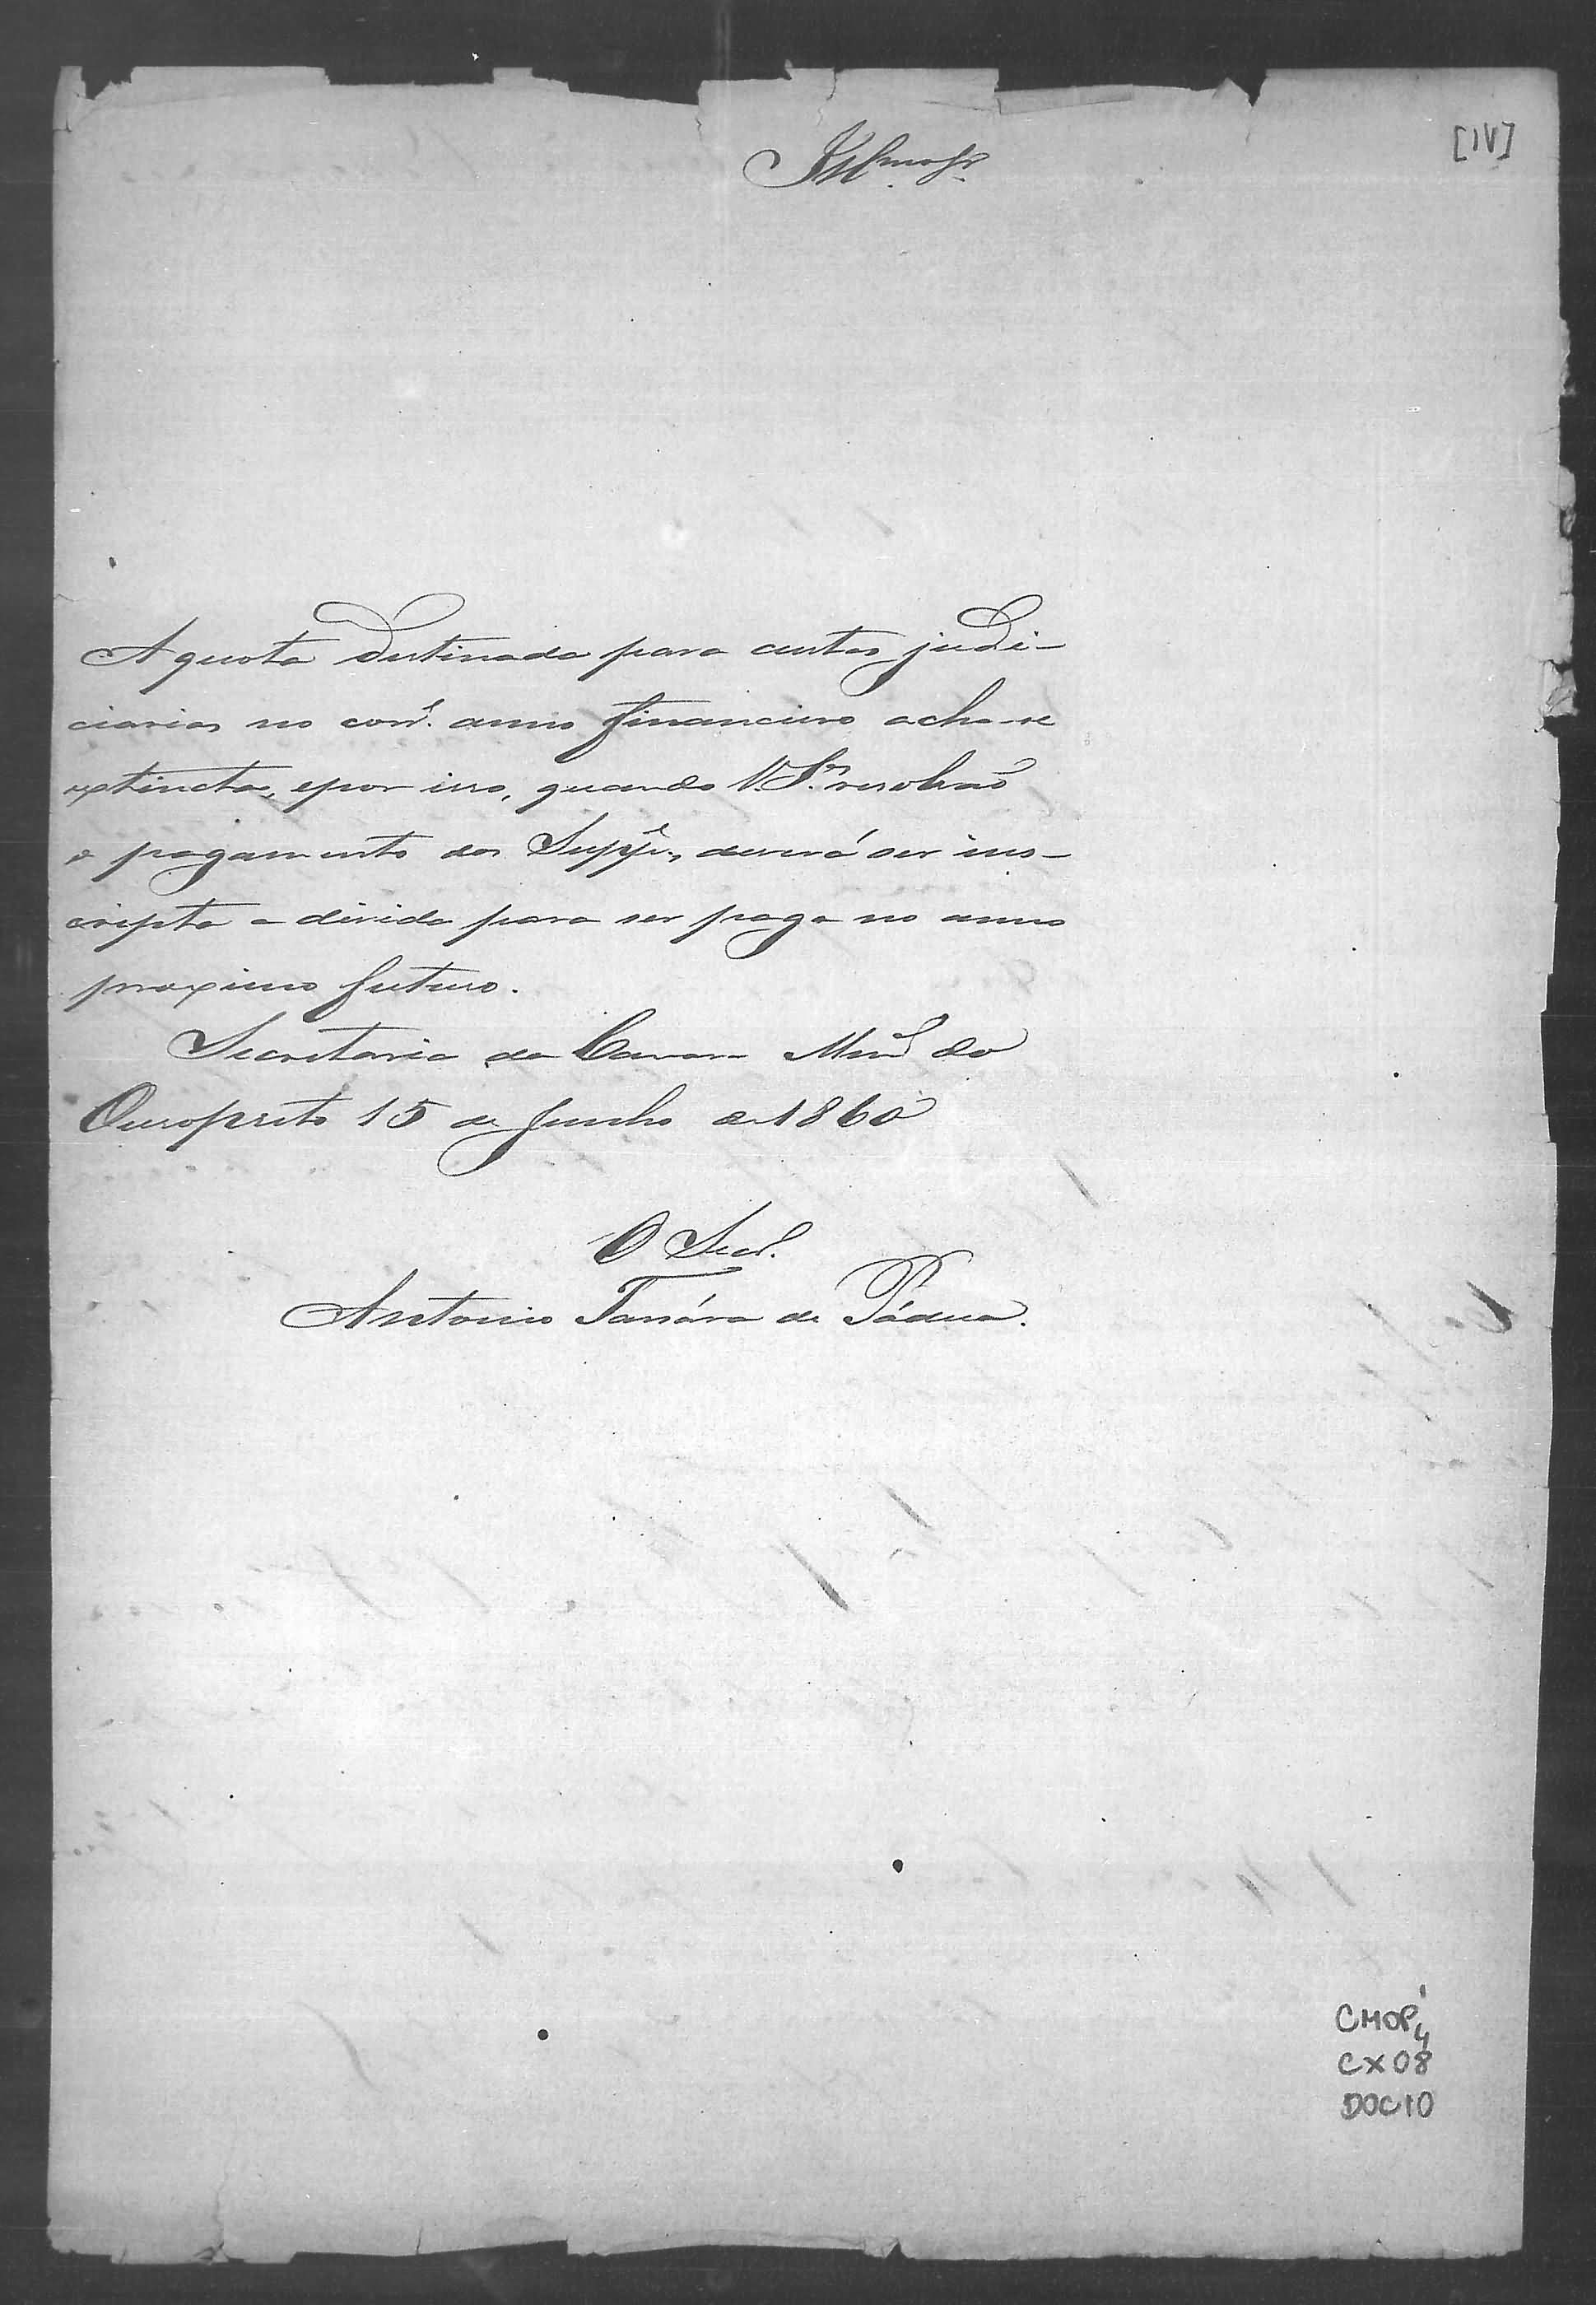 [IV]
Illmos Srs
A quota destinada para custas judi-
ciarias no corre. anno financeiro acha-se
extincta, epor isso, quando V. Sas resolvão
o pagamento dos Suppes, deverá ser ins-
cripta a divida para ser paga no anno
proximo futuro.
Secretaria da Camara Mun.al do
Ouropreto 15 de Junho de 1860
O Secr.
Antonio de Pádua.
CMOP
CX 08
DOC 10